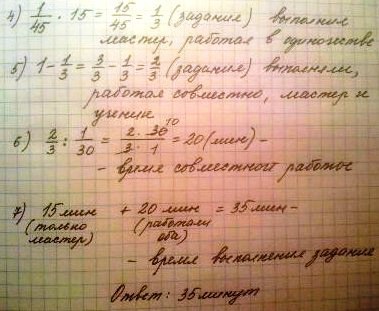 4) 1/45 · 15 = 15/45 = 1/3 (задание) выполнил
мастер, работая в одиночестве
5) 1 - 1/3 = 3/3 - 1/3 = 2/3 (задание) выполняли,
работая совместно, мастер и
ученик
6) 2/3 : 1/30 = 2 · 30 10/3 · 1 = 20 (мин) -
- время совместной работы
7) 15 мин + 20 мин = 35 мин -
(только (работали
мастер) оба)
- время выполнения задание
Ответ: 35 минут